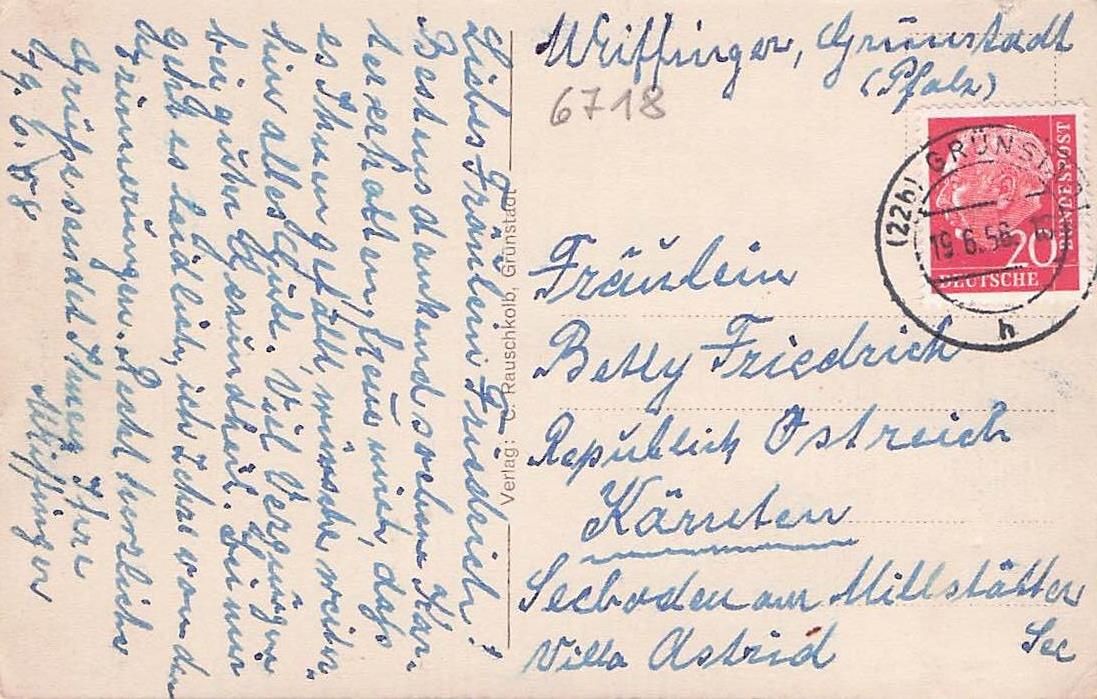 Weiffinger, Grünstadt
(Pfalz)
6718
(22b) GRÜNST
19.6.58
h
BUNDESPOST
20
DEUTSCHE
Fräulein
Betty Friedrich
Republick Östreich
Kärnten
Seeboden am Millstätter
See
Villa Astrid
Verlag: C. Rauschkolb, Grünstadt
Liebes Fräulein Friedrich!
Bestens dankend schone Kar-
te erhalten, freue mich, dass
es Ihnen gefällt wünsche weiter-
hin alles Gude. Vil Vergnügen
bei guter Gesundheit.
geht es leidlich, ich Zehre von den
Erinnerungen. Recht herzliche
Grüße sendet Ihnen Ihre
Weiffinger
19.6.58